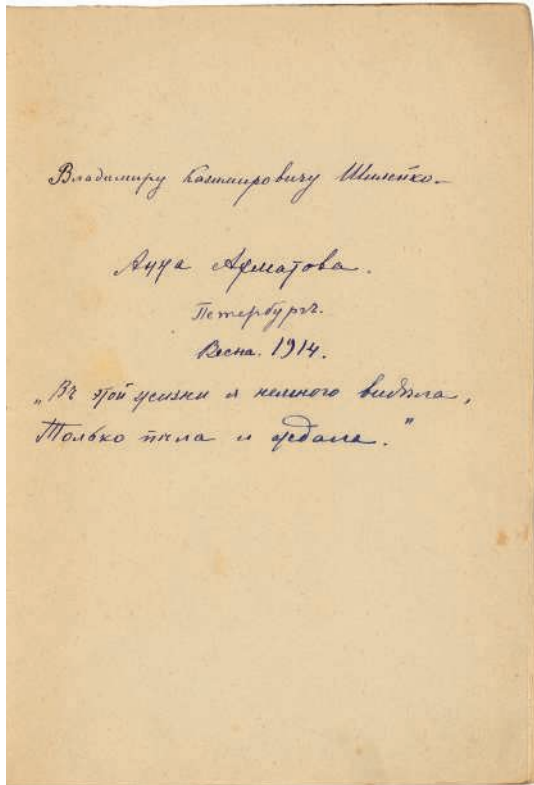 Владимиру Казимировичу Шилейко –
Анна Ахматова.
Петербургъ.
Весна. 1914.
„Въ этой жизни я немного видѣла,
Только пѣла и ждала."